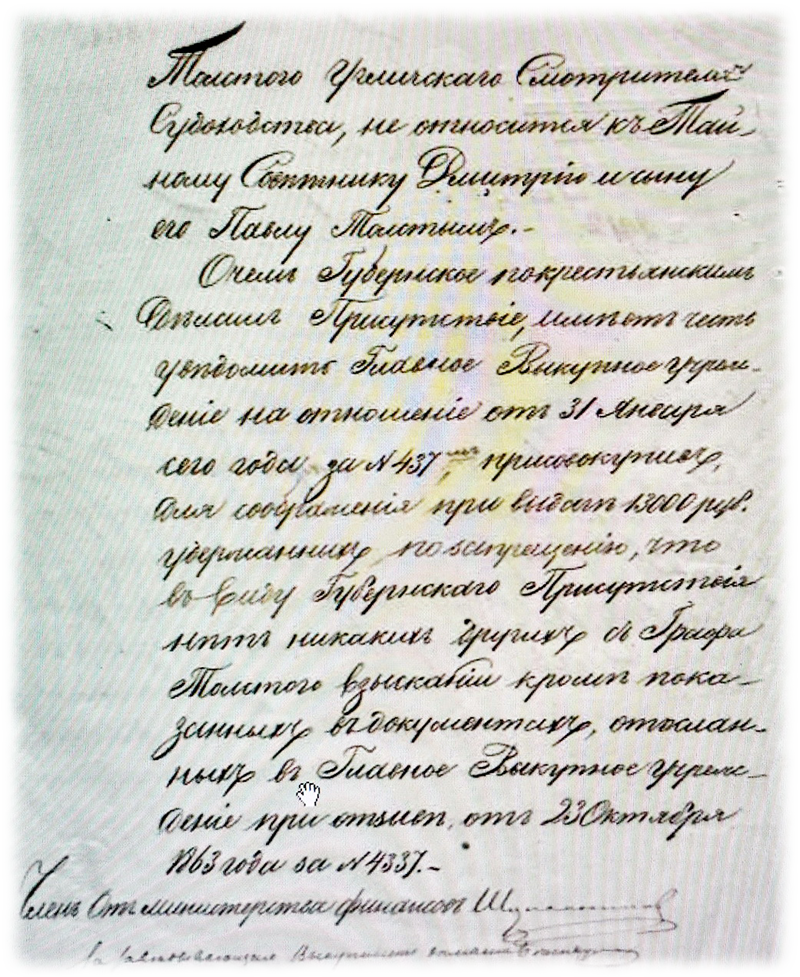 Толстого Угличскаго Смотрителя
Судоходства, не относится къ Тай-
ному Совѣтнику Дмитрію и сыну
его Павлу Толстымъ.-
О чемъ Губернское по крестьянскимъ
дѣламъ Присутствіе, имѣетъ честь
увѣдомить Главное Выкупное учреж-
деніе на отношеніе отъ 31 Января
сего года за N 437мъ, присовокупивъ,
для соображенія при выдачѣ 13000 руб.
удержанныхъ по запрещенію, что
въ виду Губернскаго Присутствія
нѣтъ никакихъ другихъ съ Графа
Толстого взысканій кромѣ пока-
занныхъ въ документахъ, отослан-
ныхъ въ Главное Выкупное учреж-
деніе при отзывѣ, отъ 23 Октября
1863 года за N 4337.-
Членъ Отъ министерства финансовъ